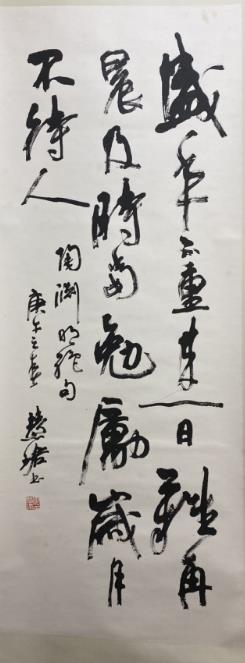 盛年不重来一日難再
晨及時當勉勵歲月
不待人
陶渊明絕句
庚午之春
慧珺书